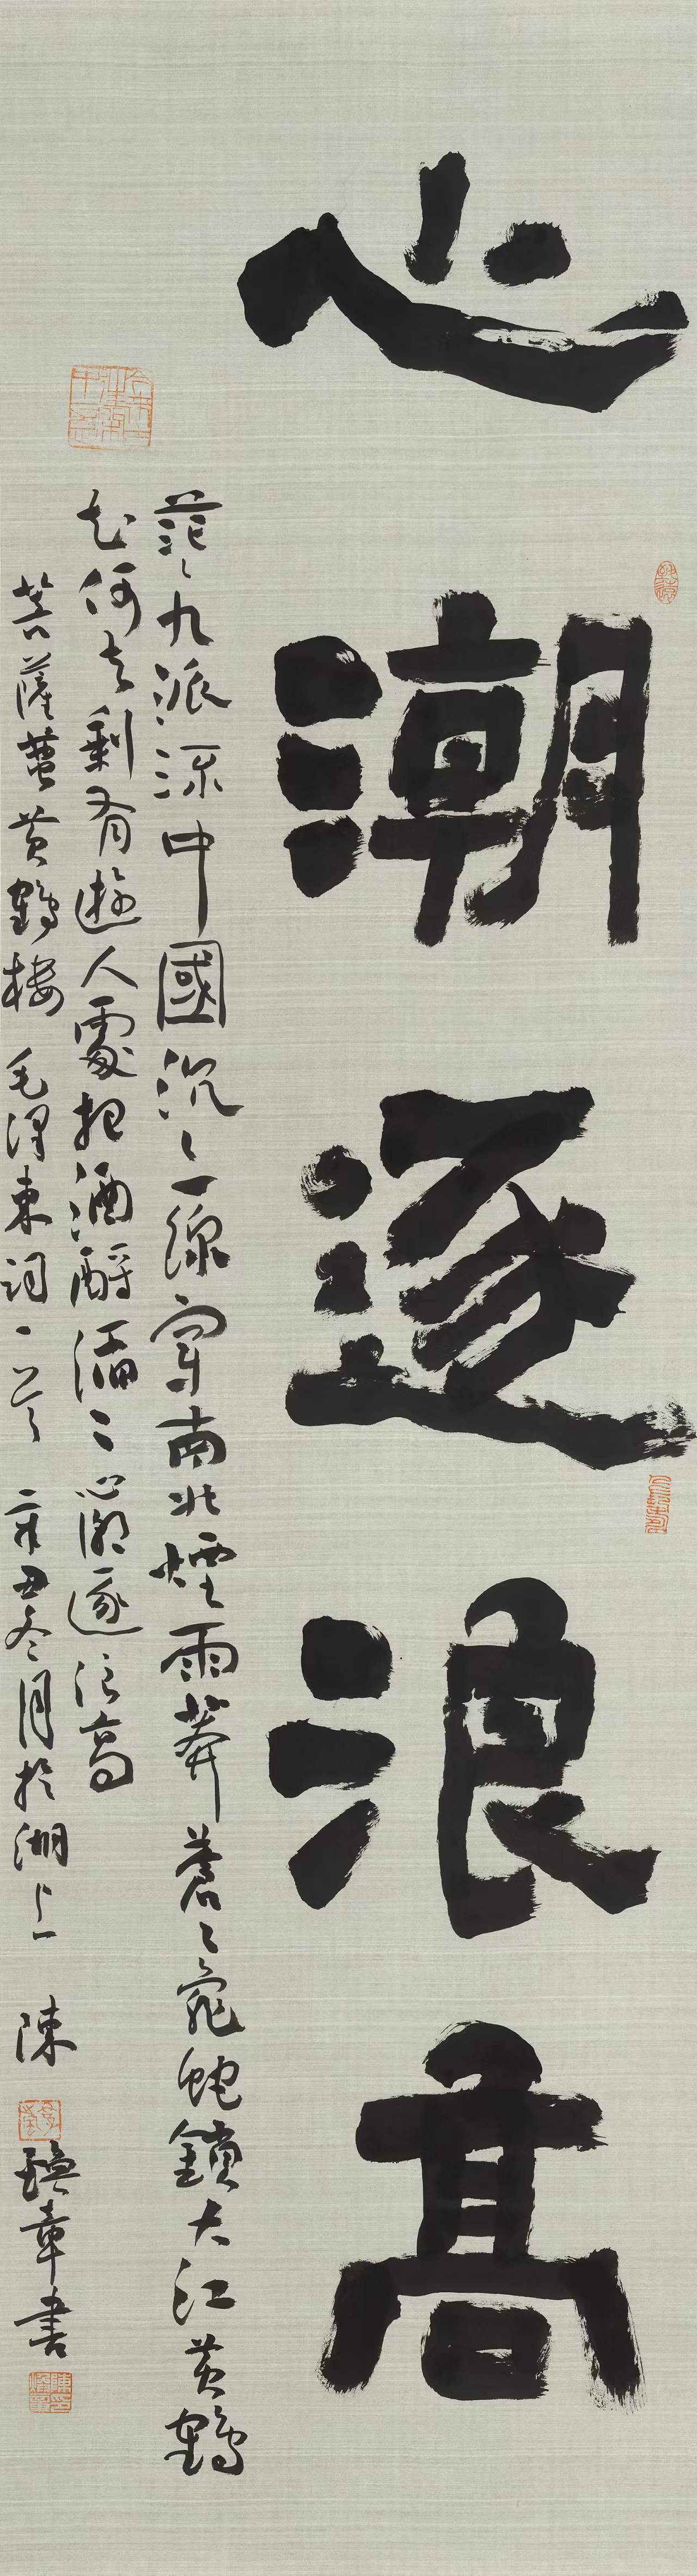 心潮逐浪高
茫〻九派流中國沉〻一線穿南北煙雨莽蒼〻龜蛇鎖大江黃鶴
知何去剩有遊人處把酒酹滔〻心潮逐浪高
菩薩蠻黃鶴樓 毛澤東詞一首 辛丑冬月於湖上 陳 章書